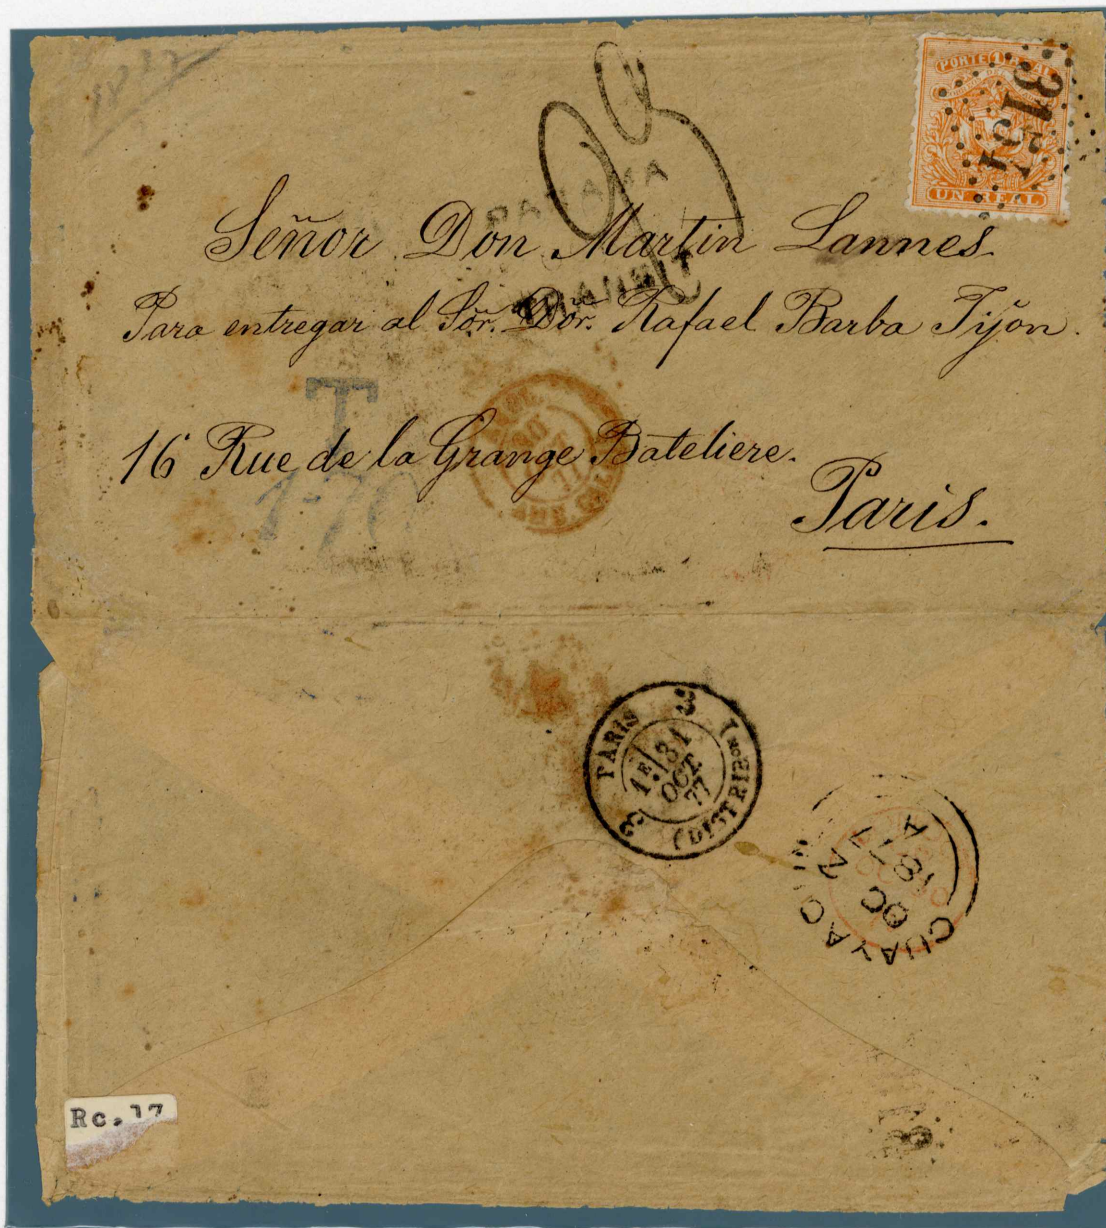 PORTE 1 REAL
3154
UN REAL
PANAMA
TRANSIT
Señor Don Martin Lannes.
Para entregar al Sor. Dor. Rafael Barba Jijón.
T
1-70
16 Rue de la Grange Bateliere.
Paris.
77
PARIS
3 3
1E/31
OCT.
77
(DISTRIBON)
GUAYAQUIL
OC 2
1877
A
Rc.17